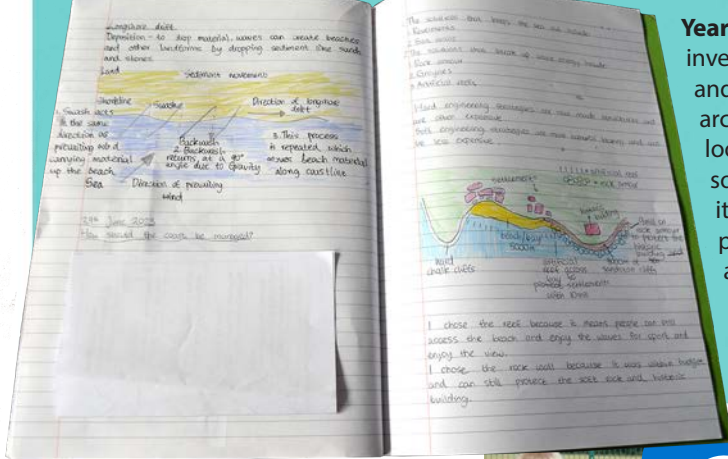 Longshore drift.
Deposition - to drop material. waves can create beaches
and other landforms by dropping sediment like sand
and stones.
Land
sediment movement
Shoreline
Swash
Direction of longshore
drift
1. Swash acts
in the same
direction as
prevailing wind
carrying material
up the beach
Backwash
2. Backwash
returns at a 90°
angle due to gravity
3. This process
is repeated, which
moves beach material
along coastline
Sea
Direction of prevailing
wind
29th June 2023
How should the coast be managed?
The solutions that keeps the sea out include
1. Revetments
2. Sea walls
The solutions that break up wave energy include
1. Rock armour
2. Groynes
3. Artificial reefs
Hard engineering strategies are man made structures and
are often expensive
Soft engineering strategies are more natural and
be less expensive
settlement
= artificial reef
= rock armour
historic
building
beach/bay
5000m
hard
chalk cliffs
artificial
reef across
bay to
protect settlement
with 10mil
sandstone cliffs
rock armour
to protect the
historic
building
I chose the reef because it means people can still
access the beach and enjoy the waves for sport and
enjoy the view.
I chose the rock wall because it was within budget
and can still protect the soft rock and historic
building.
Year
inve
and
arc
loc
sc
it
p
a